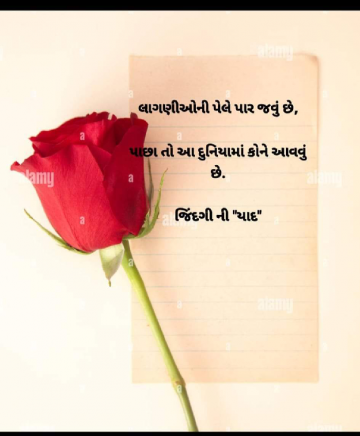 લાગણીઓની પેલે પાર જવું છે,
પાછા તો આ દુનિયામાં કોને આવવું
છે.
જિંદગી ની "યાદ"
alamy
alamy
alamy
alamy